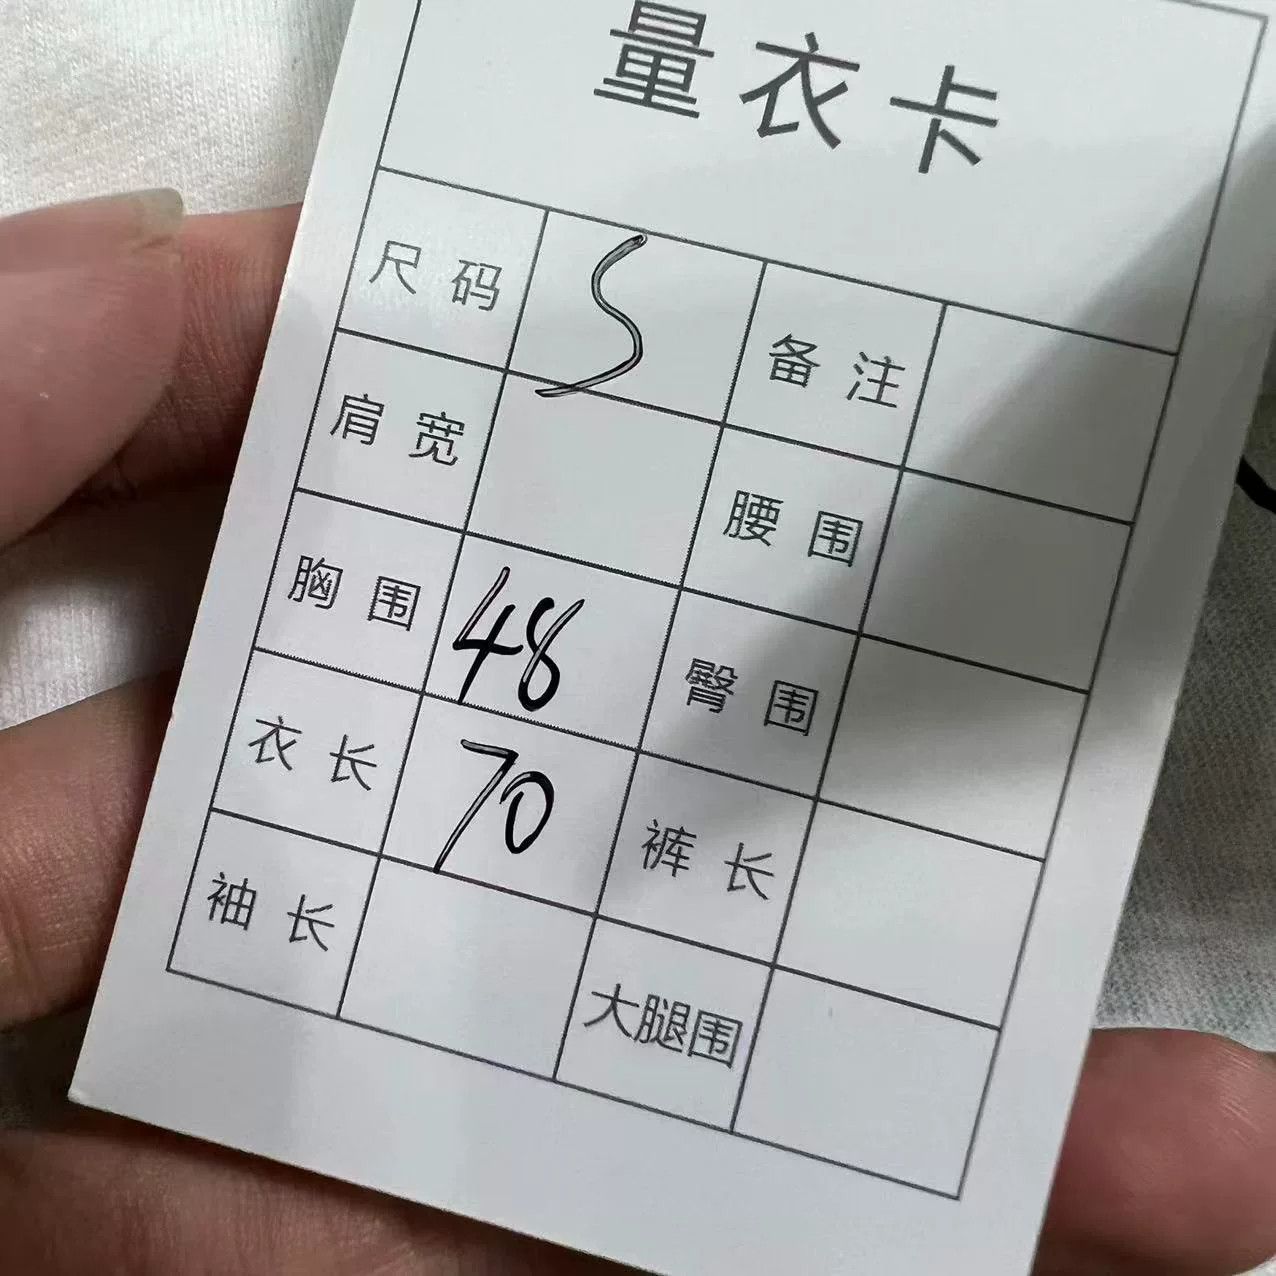 量衣卡
尺码 S 备注
肩宽 腰围
胸围 48 臀围
衣长 70 裤长
袖长 大腿围